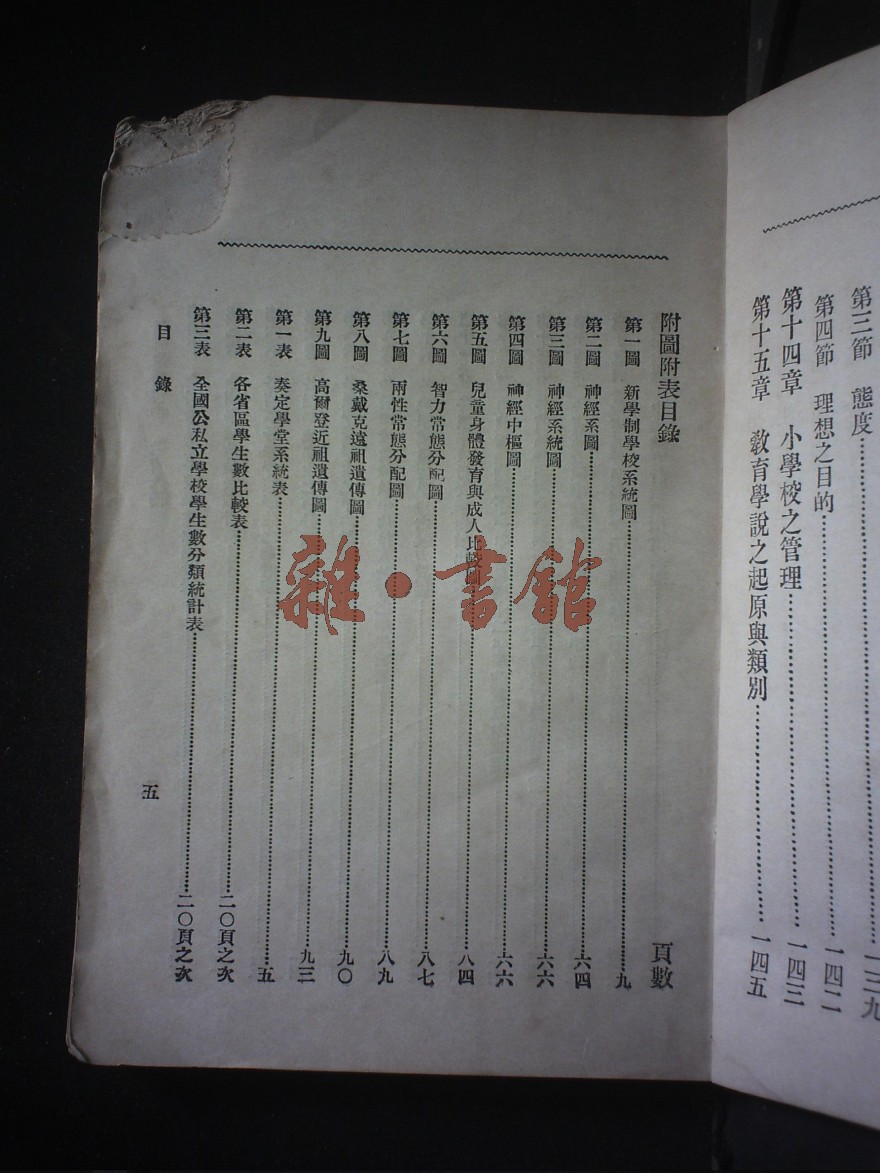 第三節　態度……一三九
第四節　理想之目的……一四二
第十四章　小學校之管理……一四三
第十五章　敎育學說之起原與類別……一四五
附圖附表目錄　頁數
第一圖　新學制學校系統圖……九
第二圖　神經系圖……六四
第三圖　神經系統圖……六六
第四圖　神經中樞圖……六六
第五圖　兒童身體發育與成人比較圖……八四
第六圖　智力常態分配圖……八七
第七圖　兩性常態分配圖……八九
第八圖　桑戴克遠祖遺傳圖……九〇
第九圖　高爾登近祖遺傳圖……九三
第一表　奏定學堂系統表……五
第二表　各省區學生數比較表……二〇頁之次
第三表　全國公私立學校學生數分類統計表……二〇頁之次
目錄　五
雜·書館